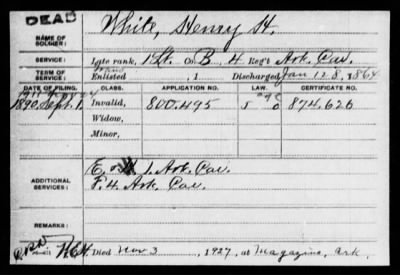 DEAD
NAME OF SOLDIER: White, Henry H.
SERVICE: Late rank, 1 Lt. Co. B, 4 Reg't Ark. Cav.
TERM OF SERVICE: Enlisted , 1 Discharged Jan 12 8, 1864
DATE OF FILING. CLASS. APPLICATION NO. LAW. CERTIFICATE NO.
1890, Sept. 1. Invalid, 800.495 874.626
Widow,
Minor,
ADDITIONAL SERVICES: E. 1. Ark. Cav.
F. 4. Ark. Cav.
REMARKS:
Died Nov 3, 1927, at Magazine, Ark.